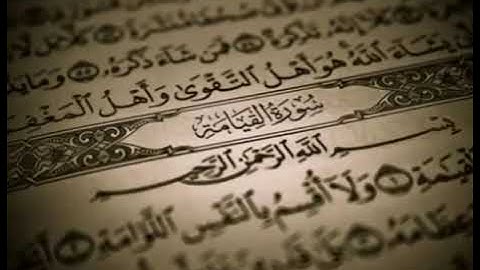 كَلَّآ إِنَّهُۥ تَذْكِرَةٌ ۝ فَمَن شَآءَ ذَكَرَهُۥ ۝ وَمَا
يَشَآءَ ٱللَّهُ هُوَ أَهْلُ ٱلتَّقْوَىٰ وَأَهْلُ ٱلْمَغْفِرَةِ
سُورَةُ القِيَامَةِ
بِسْمِ ٱللَّهِ ٱلرَّحْمَٰنِ ٱلرَّحِيمِ
ٱلْقِيَٰمَةِ ۝١ وَلَآ أُقْسِمُ بِٱلنَّفْسِ ٱللَّوَّامَةِ ۝٢
عِظَامَهُۥ ۝٣ بَلَىٰ قَٰدِرِينَ